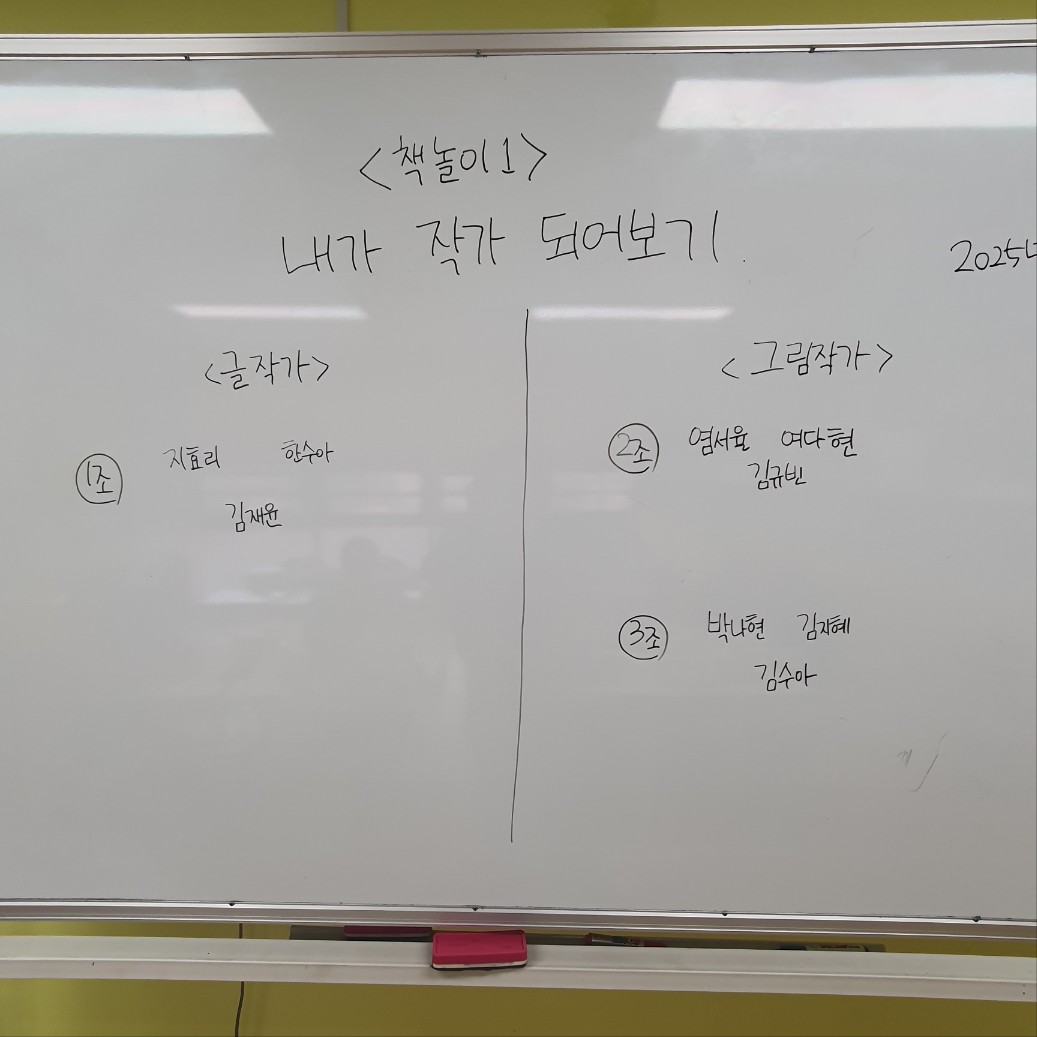 <책놀이1>
내가 작가 되어보기.
2025년
<글작가>
1조 지효리 한수아
김재윤
<그림작가>
2조 염서율 여다현
김규빈
3조 박나현 김지혜
김수아